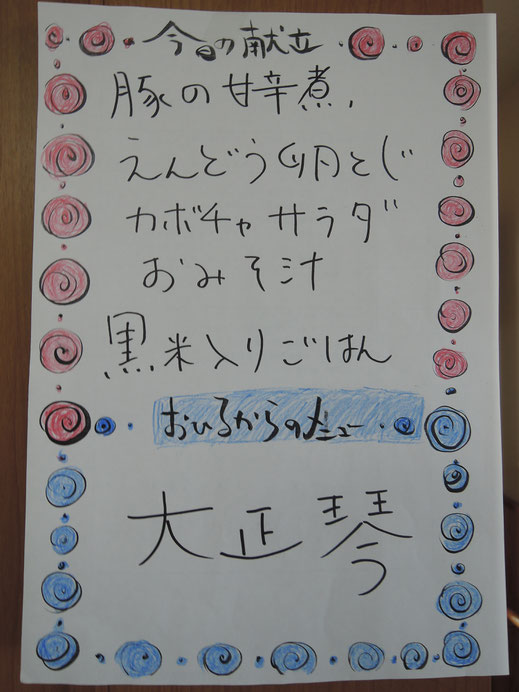 今日の献立
豚の甘辛煮,
えんどう卵とじ
カボチャサラダ
おみそ汁
黒米入りごはん
おひるからのメニュー
大正琴